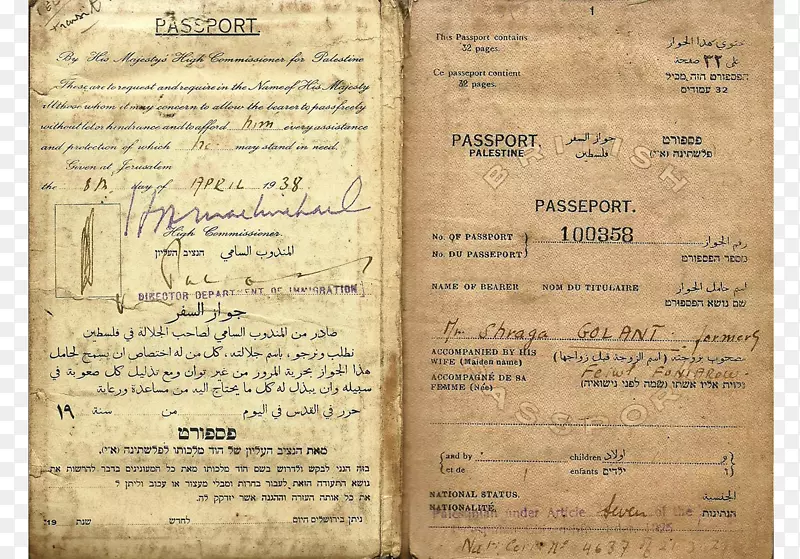 transit
PASSPORT.
By His Majesty's High Commissioner for Palestine
These are to request and require in the Name of His Majesty
all those whom it may concern to allow the bearer to pass freely
without let or hindrance and to afford him every assistance
and protection of which he may stand in need.
Given at Jerusalem
the 8th day of APRIL 1938
High Commissioner.
المندوب السامي הנציב העליון
DIRECTOR DEPARTMENT OF IMMIGRATION
جواز السفر
صادر من المندوب السامي لصاحب الجلالة في فلسطين
نطلب ونرجو، باسم جلالته، كل من له اختصاص ان يسمح لحامل
هذا الجواز بحرية المرور من غير توان ومع تذليل كل صعوبة في
سبيله وان يبذل له كل ما يحتاج اليه من مساعدة ورعاية
حرر في القدس في اليوم من سنة ١٩
פספורט
מאת הנציב העליון של הוד מלכותו לפלשתינה (א״י).
בזה הנני לבקש ולדרוש בשם הוד מלכותו מאת כל המעונינים בדבר להרשות את
נושא התעודה הזאת לעבור בחרות ומבלי מעצור או עכוב וליתן לו
את כל אותה העזרה וההגנה אשר יזדקק לה.
ניתן בירושלים היום לחדש שנת 19
1
This Passport contains
32 pages.
Ce passeport contient
32 pages.
يحتوي هذا الجواز
على ٣٢ صفحة
הפספורט הזה מכיל
32 עמודים
BRITISH
PASSPORT جواز السفر פספורט
PALESTINE فلسطين פלשתינה (א״י)
PASSEPORT.
No. OF PASSPORT 100358 رقم الجواز
No. DU PASSEPORT מספר הפספורט
NAME OF BEARER NOM DU TITULAIRE اسم حامل الجواز
שם נושא הפספורט
Mr. Shraga GOLANT formerly
ACCOMPANIED BY HIS
WIFE (Maiden name)
مصحوب بزوجته (اسم الزوجة قبل زواجها)
Feiwl
ACCOMPAGNÉ DE SA
FEMME (Née)
נלוית אליו אשתו (שמה לפני נישואיה)
PASSPORT
and by children اولاد و
et de enfants ילדים ו
NATIONAL STATUS. الجنسية
NATIONALITÉ. הנתינות
Palestinian under Article seven of the
1925
Nat. Cert. No 4637